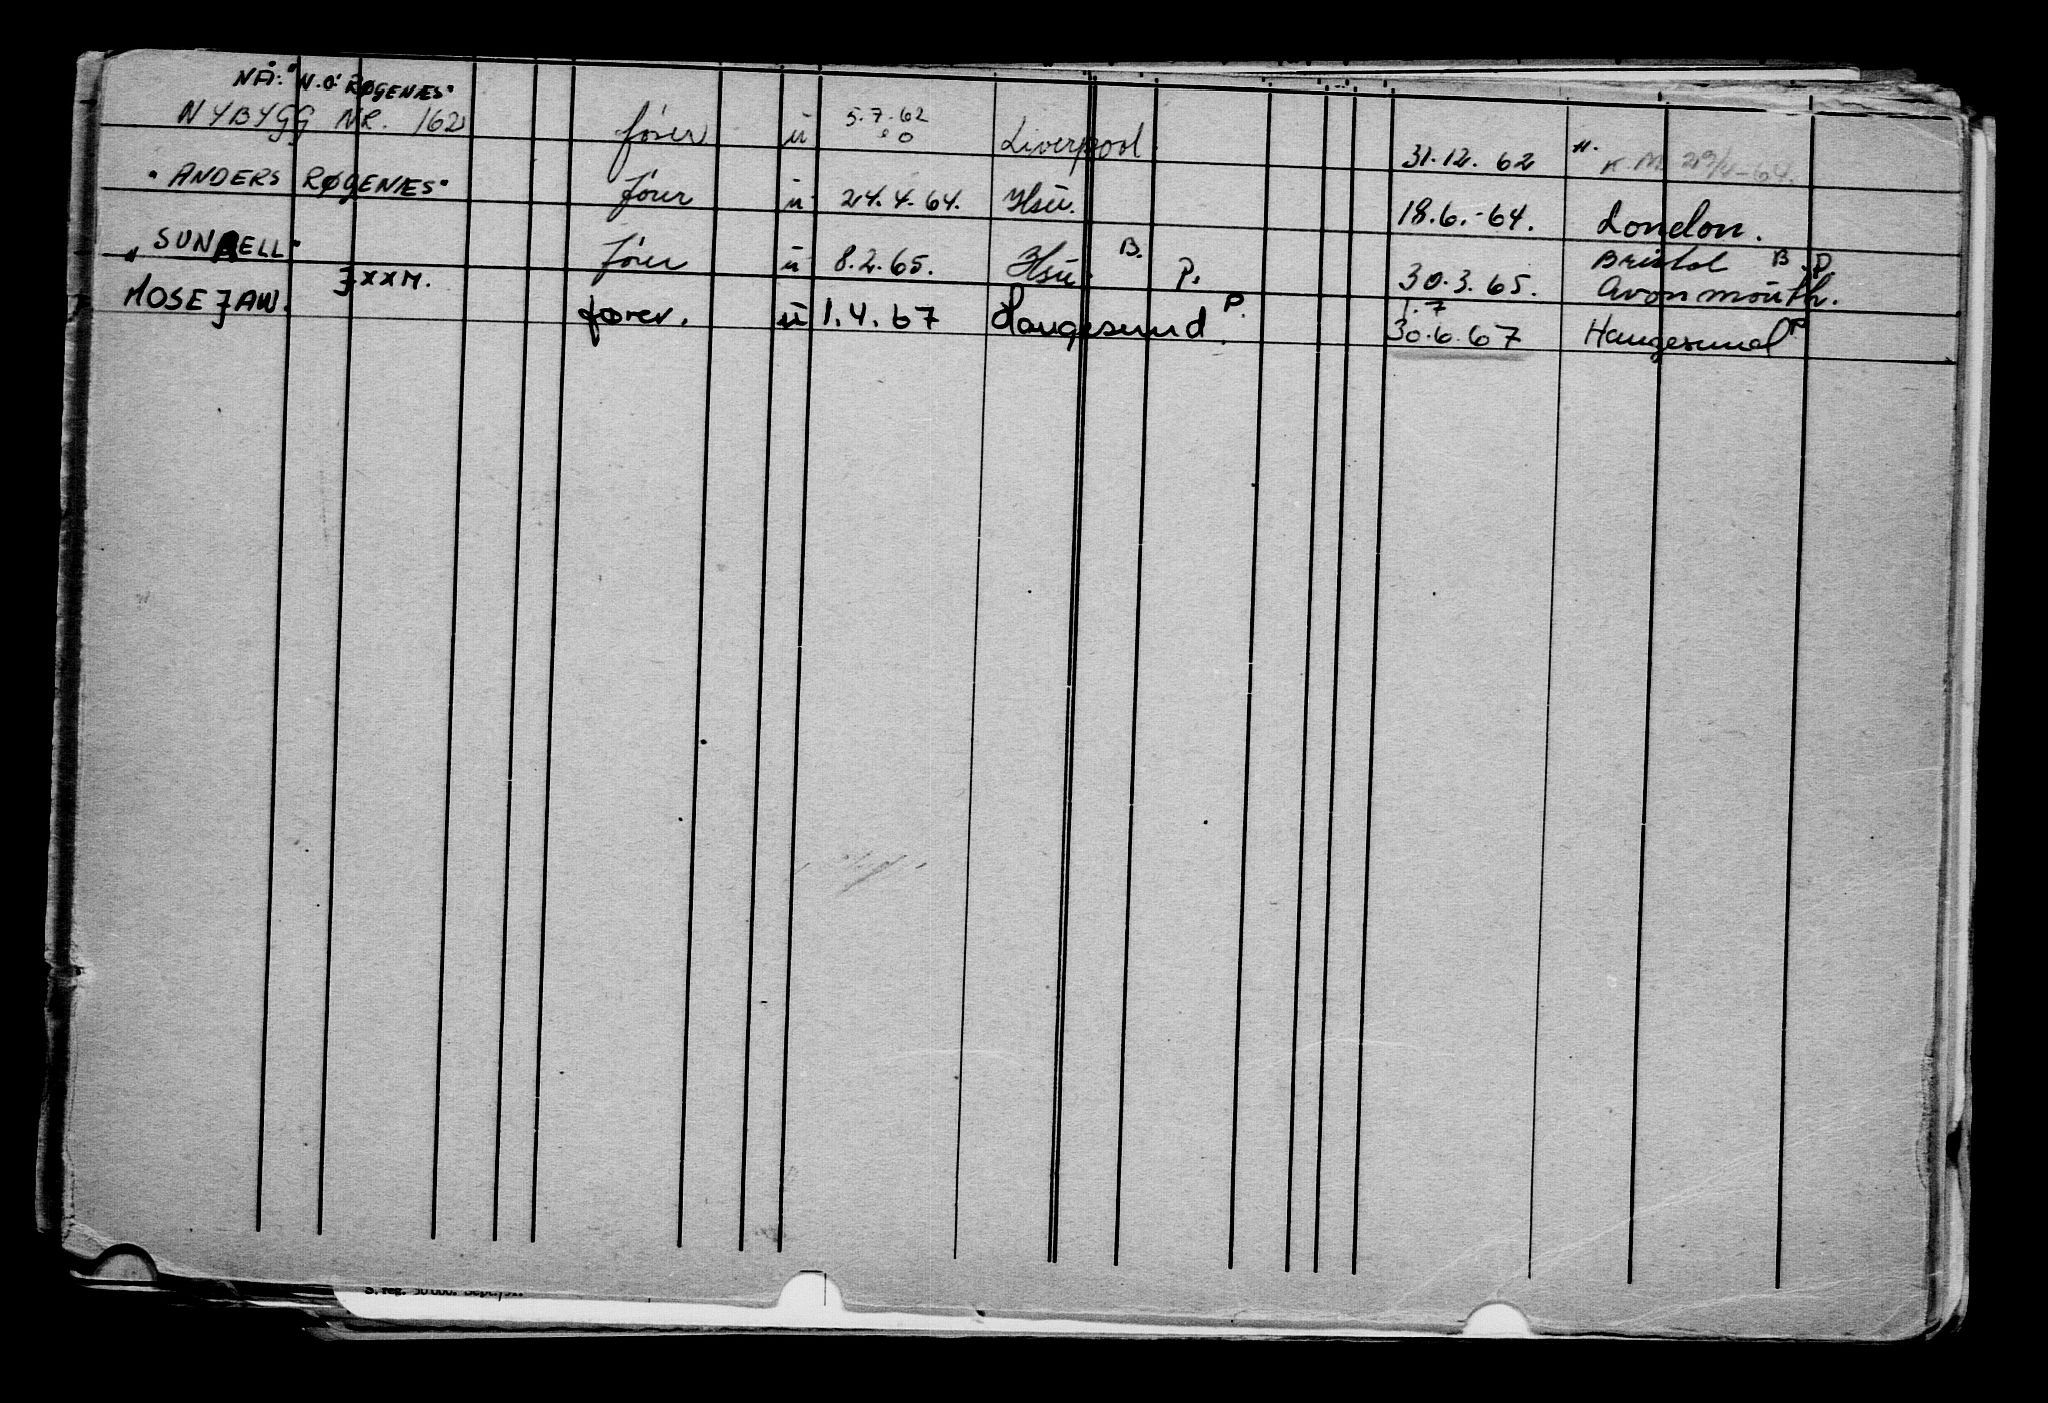 NÅ: "N.O. RØGENÆS"
NYBYGG NR. 162 fører u 5.7.62 Liverpool 31.12.62
"ANDERS RØGENÆS" fører u 24.4.64. Hsu. 18.6.-64. London.
"SUN ELL" fører u 8.2.65. Hsu. B. P. 30.3.65. Bristol B. P. Avonmouth.
MOSE JAW. JXXM. fører. u 1.4.67 Haugesund P. 1.7 30.6.67 Haugesund P
S. reg. 50 000.